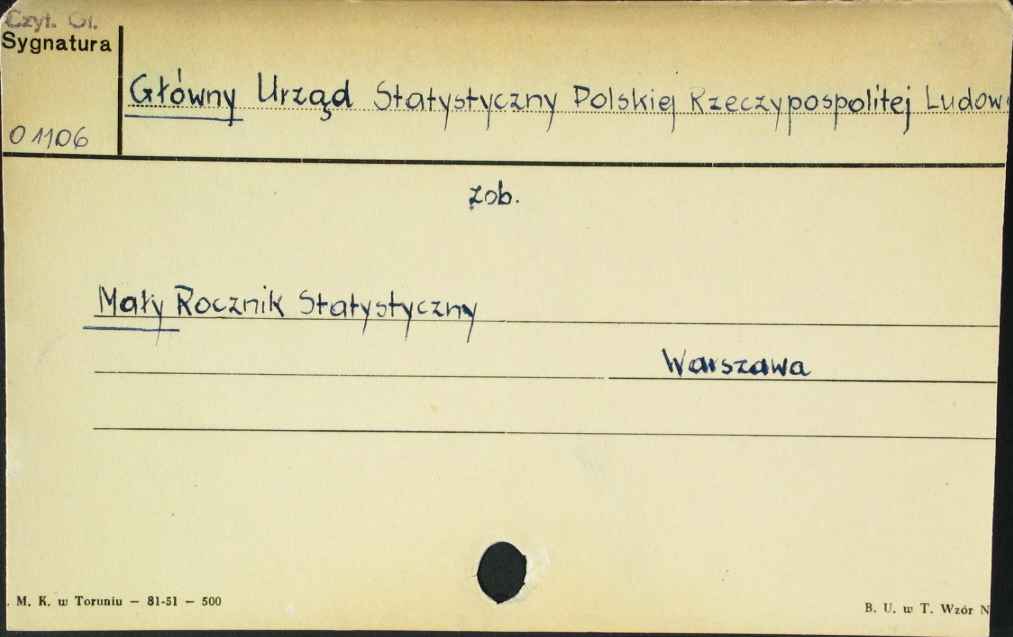 Czyt. Gł.
Sygnatura
Główny Urząd Statystyczny Polskiej Rzeczypospolitej Ludow
01106
zob.
Mały Rocznik Statystyczny
Warszawa
. M. K. w Toruniu — 81-51 — 500
B. U. w T. Wzór N